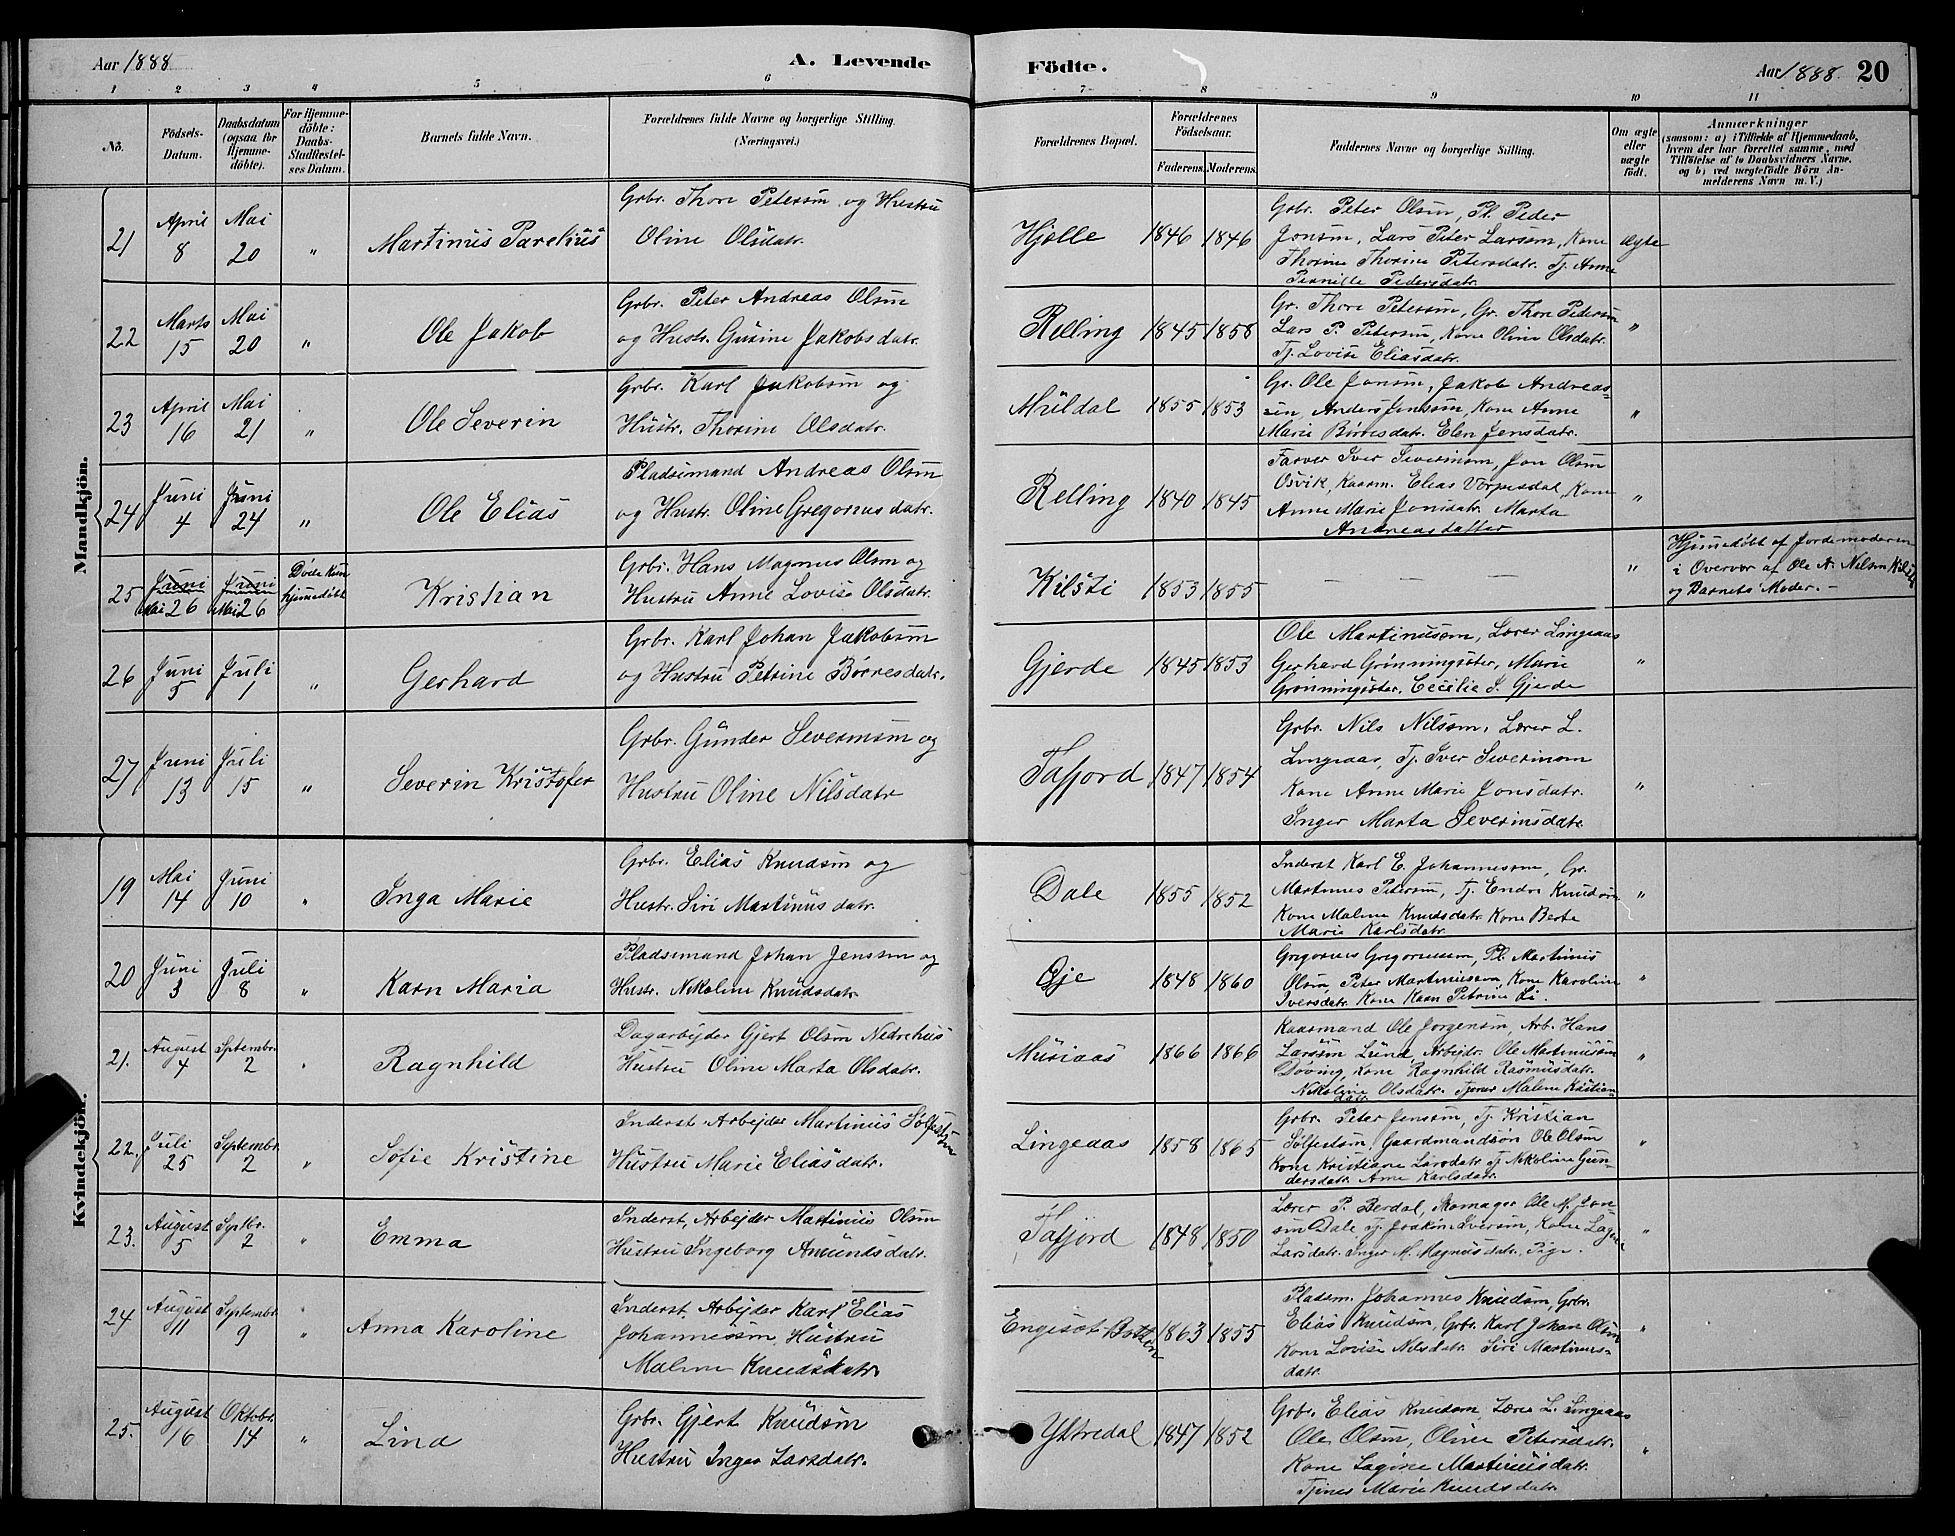 Aar 1888
A. Levende
Födte.
Aar 1888. 20
1 2 3 4 5 6 7 8 9 10 11
No.
Födsels-
Datum.
Daabsdatum
(ogsaa for
Hjemme-
döbte).
For Hjemme-
döbte:
Daabs-
Stadfæstel-
ses Datum.
Barnets fulde Navn.
Forældrenes fulde Navne og borgerlige Stilling.
(Næringsvei.)
Forældrenes Bopæl.
Forældrenes
Födselsaar.
Faderens. Moderens.
Faddernes Navne og borgerlige Stilling.
Om ægte
eller
uægte
födt.
Anmærkninger
(saasom: a) i Tilfælde af Hjemmedaab,
hvem der har forrettet samme, med
Tilföielse af to Daabsvidners Navne.
og b) ved uægtefödte Börn An-
melderens Navn m. V.)
Mandkjön.
21
April
8
Mai
20
"
Martinus Parelius
Grbr. Thore Petersøn og Hustru
Oline Olsdatr.
Hjelle
1846 1846
Grbr. Peter Olsøn, Pl. Peder
Jonsøn, Lars Peter Larsøn, Kone
Thorine Petersdatr. Tj. Anne
Pernille Pedersdatr.
ægte
22
Marts
15
Mai
20
"
Ole Jakob
Grbr. Peter Andreas Olsøn
og Hustr. Gurine Jakobsdatr.
Relling
1845 1858
Gr. Thore Petersøn, Gr. Thore Petersøn
Lars P. Petersøn, Kone Oline Olsdatr.
Tj. Lovise Eliasdatr.
"
23
April
16
Mai
21
"
Ole Severin
Grbr. Karl Jakobsøn og
Hustr. Thorine Olsdatr.
Muldal
1855 1853
Gr. Ole Jonsøn, Jakob Andreas-
søn, Anders Jenssøn, Kone Anne
Marie Børresdatr. Elen Jensdatr.
"
24
Juni
4
Juni
24
"
Ole Elias
Pladsemand Andreas Olsøn
og Hustr. Oline Gregoriusdatr.
Relling
1840 1845
Farver Iver Severinsøn, Jon Olsøn
Osvik, Elias Kone
Anne Marie Jonsdatr. Marta
Andreasdatter
"
25
Juni
Mai 26
Juni
Mai 26
Døde Kun
hjemedøbt
Kristian
Grbr. Hans Magnus Olsøn og
Hustru Anne Lovise Olsdatr.
Kilsti
1853 1855
— — — —
"
Hjemedøbt af Jordemoderen
i Overvær af Ole N. Nilsøn Kilsti
og Barnets Moder. -
26
Juni
5
Juli
1
"
Gerhard
Grbr. Karl Johan Jakobsøn
og Hustru Petrine Børresdatr.
Gjerde
1845 1853
Ole Martinussøn, Lærer Lingeaas
Gerhard Grønningsæter, Marie
Grønningsæter, Cecilie S. Gjerde
"
27
Juni
13
Juli
15
"
Severin Kristofer
Grbr. Gunder Severinsøn og
Hustru Oline Nilsdatr
Tafjord
1847 1854
Grbr. Nils Nilsøn, Lærer L.
Lingeaas, Tj. Iver Severinsøn
Kone Anne Marie Jonsdatr.
Inger Marta Severinsdatr.
"
Kvindekjön.
19
Mai
14
Juni
10
"
Inga Marie
Grbr. Elias Knudsøn og
Hustr. Siri Martinusdatr.
Dale
1855 1852
Inderst Karl E. Johannessøn, Gr.
Martinus Petersøn, Tj. Endre Knudsøn
Kone Malene Knudsdatr. Kone Berte
Marie Karlsdatr.
"
20
Juni
3
Juli
8
"
Karn Maria
Pladsemand Johan Jenssøn og
Hustr. Nikoline Knudsdatr.
Øje
1848 1860
Gregorius Gregoriussøn, Pl. Martinus
Olsøn, Peter Martinussøn, Kone Karoline
Iversdatr. Kone Karn Petrine Li.
"
21.
August
4
Septembr.
2
"
Ragnhild
Dagarbejder Gjert Olsøn Nedrehus
Hustru Oline Marta Olsdatr.
Musiaas
1866 1866
Kaasmand Ole Jørgensøn, Arb. Hans
Larssøn Lund, Arbejdr. Ole Martinussøn
Døving, Kone Ragnhild Rasmusdatr.
Nikoline Olsdatr. Malene Kristian
datr.
"
22.
Juli
25
Septembr.
2
"
Sofie Kristine
Inderst Arbejder Martinus Sølfestsøn
Hustru Marie Eliasdatr.
Lingeaas
1858 1865
Grbr. Peter Jenssøn, Tj. Kristian
Sølfestsøn, Gaardmandsøn Ole Olsøn
Kone Kristiane Larsdatr. Tj. Nikoline Gun-
dersdatr. Ane Karlsdatr.
"
23.
August
5
Septbr.
2
"
Emma
Inderst, Arbejder Martinus Olsøn
Hustru Ingeborg Amundsdatr.
Tafjord
1848 1850
Lærer P. Berdal, Skomager Ole M. Jon
søn Dale, Tj. Joakim Iversøn, Kone
Larsdatr. Inger M. Magnusdatr. Pige.
"
24
August
11
Septembr.
9
"
Anna Karoline
Inderst. Arbejder Karl Elias
Johannessøn, Hustru
Malene Knudsdatr.
Engeset-Botten
1863 1855
Pladsm. Johannes Knudsøn, Grbr.
Elias Knudsøn, Grbr. Karl Johan Olsøn
Kone Lovise Nilsdatr. Siri Martinus-
datr.
"
25.
August
16
Oktobr.
14
"
Lina
Grbr. Gjert Knudsøn
Hustru Inger Larsdatr.
Yttredal
1847 1852
Grbr. Elias Knudsøn, Lærer L. Lingeaas
Ole Olsøn, Oline Petersdatr.
Kone Martinusdatr.
Tjenes Marie Knudsdatr.
"